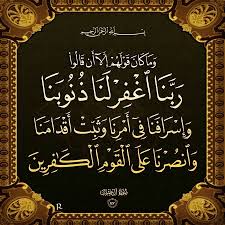 بسم الله الرحمن الرحيم
وَمَا كَانَ قَوْلَهُمْ إِلَّا أَن قَالُوا
رَبَّنَا ٱغْفِرْ لَنَا ذُنُوبَنَا
وَإِسْرَافَنَا فِىٓ أَمْرِنَا وَثَبِّتْ أَقْدَامَنَا
وَٱنصُرْنَا عَلَى ٱلْقَوْمِ ٱلْكَٰفِرِينَ